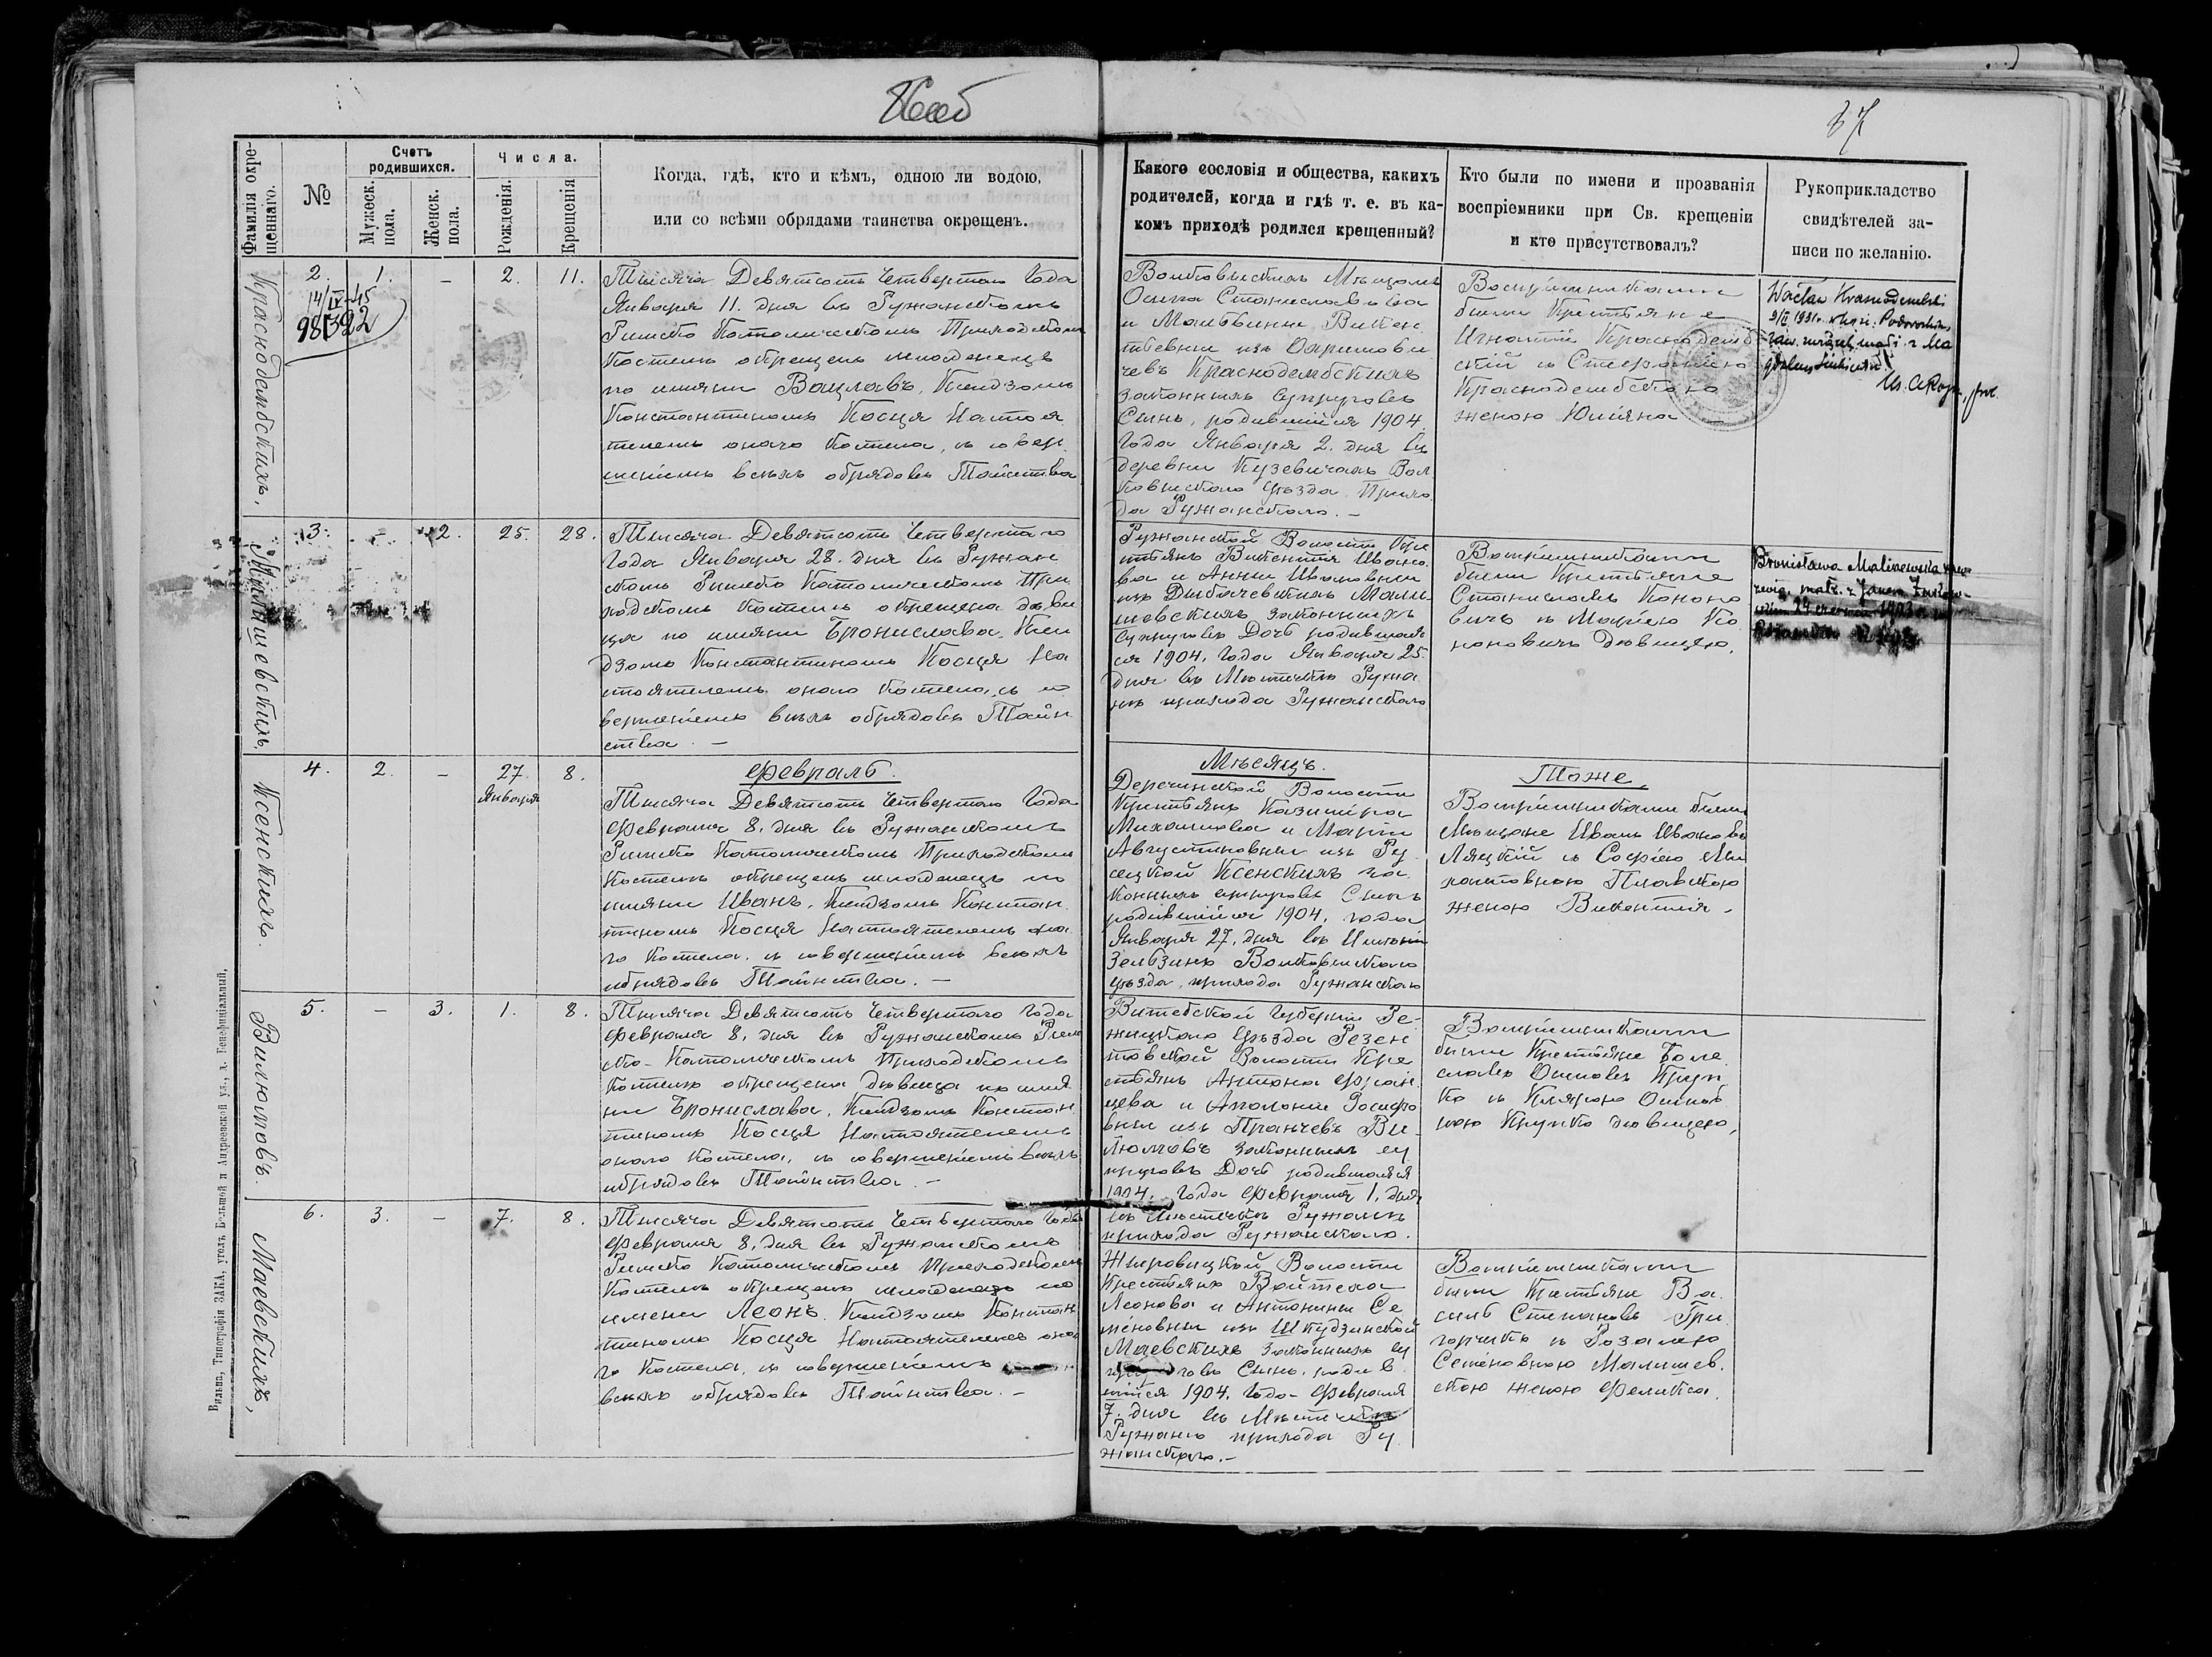 86об
87
Фамилія окре-
щеннаго.
№
Счетъ
родившихся.
Мужеск.
пола.
Женск.
пола.
Числа.
Рожденія.
Крещенія
Когда, гдѣ, кто и кѣмъ, одною ли водою,
или со всѣми обрядами таинства окрещенъ.
Какого сословія и общества, какихъ
родителей, когда и гдѣ т. е. въ ка-
комъ приходѣ родился крещенный?
Кто были по имени и прозванія
воспріемники при Св. крещеніи
и кто присутствовалъ?
Рукоприкладство
свидѣтелей за-
писи по желанію.
Краснодембскихъ.
2. 1. – 2. 11.
14/IV-45
98392
Тысяча Девятсотъ Четвертаго Года
Января 11. дня въ Ружанскомъ
Римско Католическомъ Приходскомъ
Костелѣ окрещенъ младенецъ
по имяни Вацлавъ, Ксендзомъ
Константиномъ Косця Настоя
телемъ онаго Костела, съ совер
шеніемъ всѣхъ обрядовъ Таинства
Волковыскихъ Мѣщанъ
Осипа Станиславова
и Мальвины Викен
тьевны изъ
чевъ Краснодембскихъ
законныхъ супруговъ
Сынъ, родившійся 1904
Года Января 2. дня въ
деревни Кузевичахъ Вол
ковыскаго уѣзда, Прихо
да Ружанскаго. –
Воспріемниками
были Крестьяне
Игнатій Краснодемб
скій съ Стефаніею
Краснодембскою
женою Юліяна
Wacław Krasnodembski
zaw. związek małż. z Ma
Малишевскихъ.
3. – 2. 25. 28.
Тысяча Девятсотъ Четвертаго
Года Января 28. дня въ Ружан
скомъ Римско Католическомъ При
ходскомъ Костелѣ окрещена дѣви
ца по имяни Бронислава, Ксен
дзомъ Константиномъ Косця На
стоятелемъ онаго Костела, съ со
вершеніемъ всѣхъ обрядовъ Таин
ства. –
Ружанской Волости Кре
стьянъ Викентія Ивано
ва и Анны Ивановны
изъ Дыбачевскихъ Мали
шевскихъ законныхъ
супруговъ Дочь родившая
ся 1904. Года Января 25.
дня въ Мѣстечкѣ Ружа
нѣ прихода Ружанскаго
Воспріемниками
были Крестьяне
Станиславъ Конано
вичъ съ Маріею Ко
нановичъ дѣвицею.
Bronisława Malinewska
związ. małż. z Janem
Ксенскихъ.
4. 2. – 27. 8.
Января
Февраль.
Мѣсяцъ.
Тоже.
Тысяча Девятсотъ Четвертаго Года
Февраля 8. дня въ Ружанскомъ
Римско Католическомъ Приходскомъ
Костелѣ окрещенъ младенецъ по
имяни Иванъ, Ксендзомъ Констан
тиномъ Косця Настоятелемъ она
го Костела, съ совершеніемъ всѣхъ
обрядовъ Таинства. –
Деречинской Волости
Крестьянъ Казиміра
Михайлова и Маріи
Августиновны изъ Ру
сецкой Ксенскихъ за
конныхъ супруговъ Сынъ
родившійся 1904. года
Января 27. дня въ Имѣніи
Зельзинѣ Волковыскаго
уѣзда, прихода Ружанскаго
Воспріемниками были
Мѣщане Иванъ Ивановъ
Ляцкій съ Софіею
Плавскою
женою Викентія –
Вилюмовъ.
5. – 3. 1. 8.
Тысяча Девятсотъ Четвертаго Года
Февраля 8. дня въ Ружанскомъ Рим
ско-Католическомъ Приходскомъ
Костелѣ окрещена дѣвица по имя
ни Бронислава, Ксендзомъ Констан
тиномъ Косця Настоятелемъ
онаго Костела, съ совершеніемъ всѣхъ
обрядовъ Таинства. –
Витебской Губерніи Рѣ-
жицкаго Уѣзда Резен
товской Волости Кре
стьянъ Антона Фран
цева и Аполоніи Іосифо
вны изъ Пранчевъ Ви-
люмовъ законныхъ су
пруговъ Дочь родившаяся
1904. Года Февраля 1. дня
въ Мѣстечкѣ Ружанѣ
прихода Ружанскаго.
Воспріемниками
были Крестьяне Боле
славъ Осиповъ Круп
ко съ Клярою Осипов
ною Крупко дѣвицею,
Маевскихъ,
6. 3. – 7. 8.
Тысяча Девятсотъ Четвертаго Года
Февраля 8. дня въ Ружанскомъ
Римско Католическомъ Приходскомъ
Костелѣ окрещенъ младенецъ по
имени Леонъ. Ксендзомъ Констан
тиномъ Косця Настоятелемъ она
го Костела, съ совершеніемъ
всѣхъ обрядовъ Таинства. –
Жировицкой Волости
Крестьянъ Войтеха
Леонова и Антонины Се
меновны изъ Шкудзинской
Маевскихъ законныхъ су
говъ Сынъ, родив
шійся 1904. Года Февраля
7. дня въ Мѣстечкѣ
Ружанѣ прихода Ру
жанскаго. –
Воспріемниками
были Крестьяне Ва
силь Степановъ Гри
горчикъ съ Розаліею
Семеновною Малишев.
скою женою Феликса.
Вильна, Типографія ЗАКА, уголъ Большой и Андреевской ул., д. Бенефиціальный,